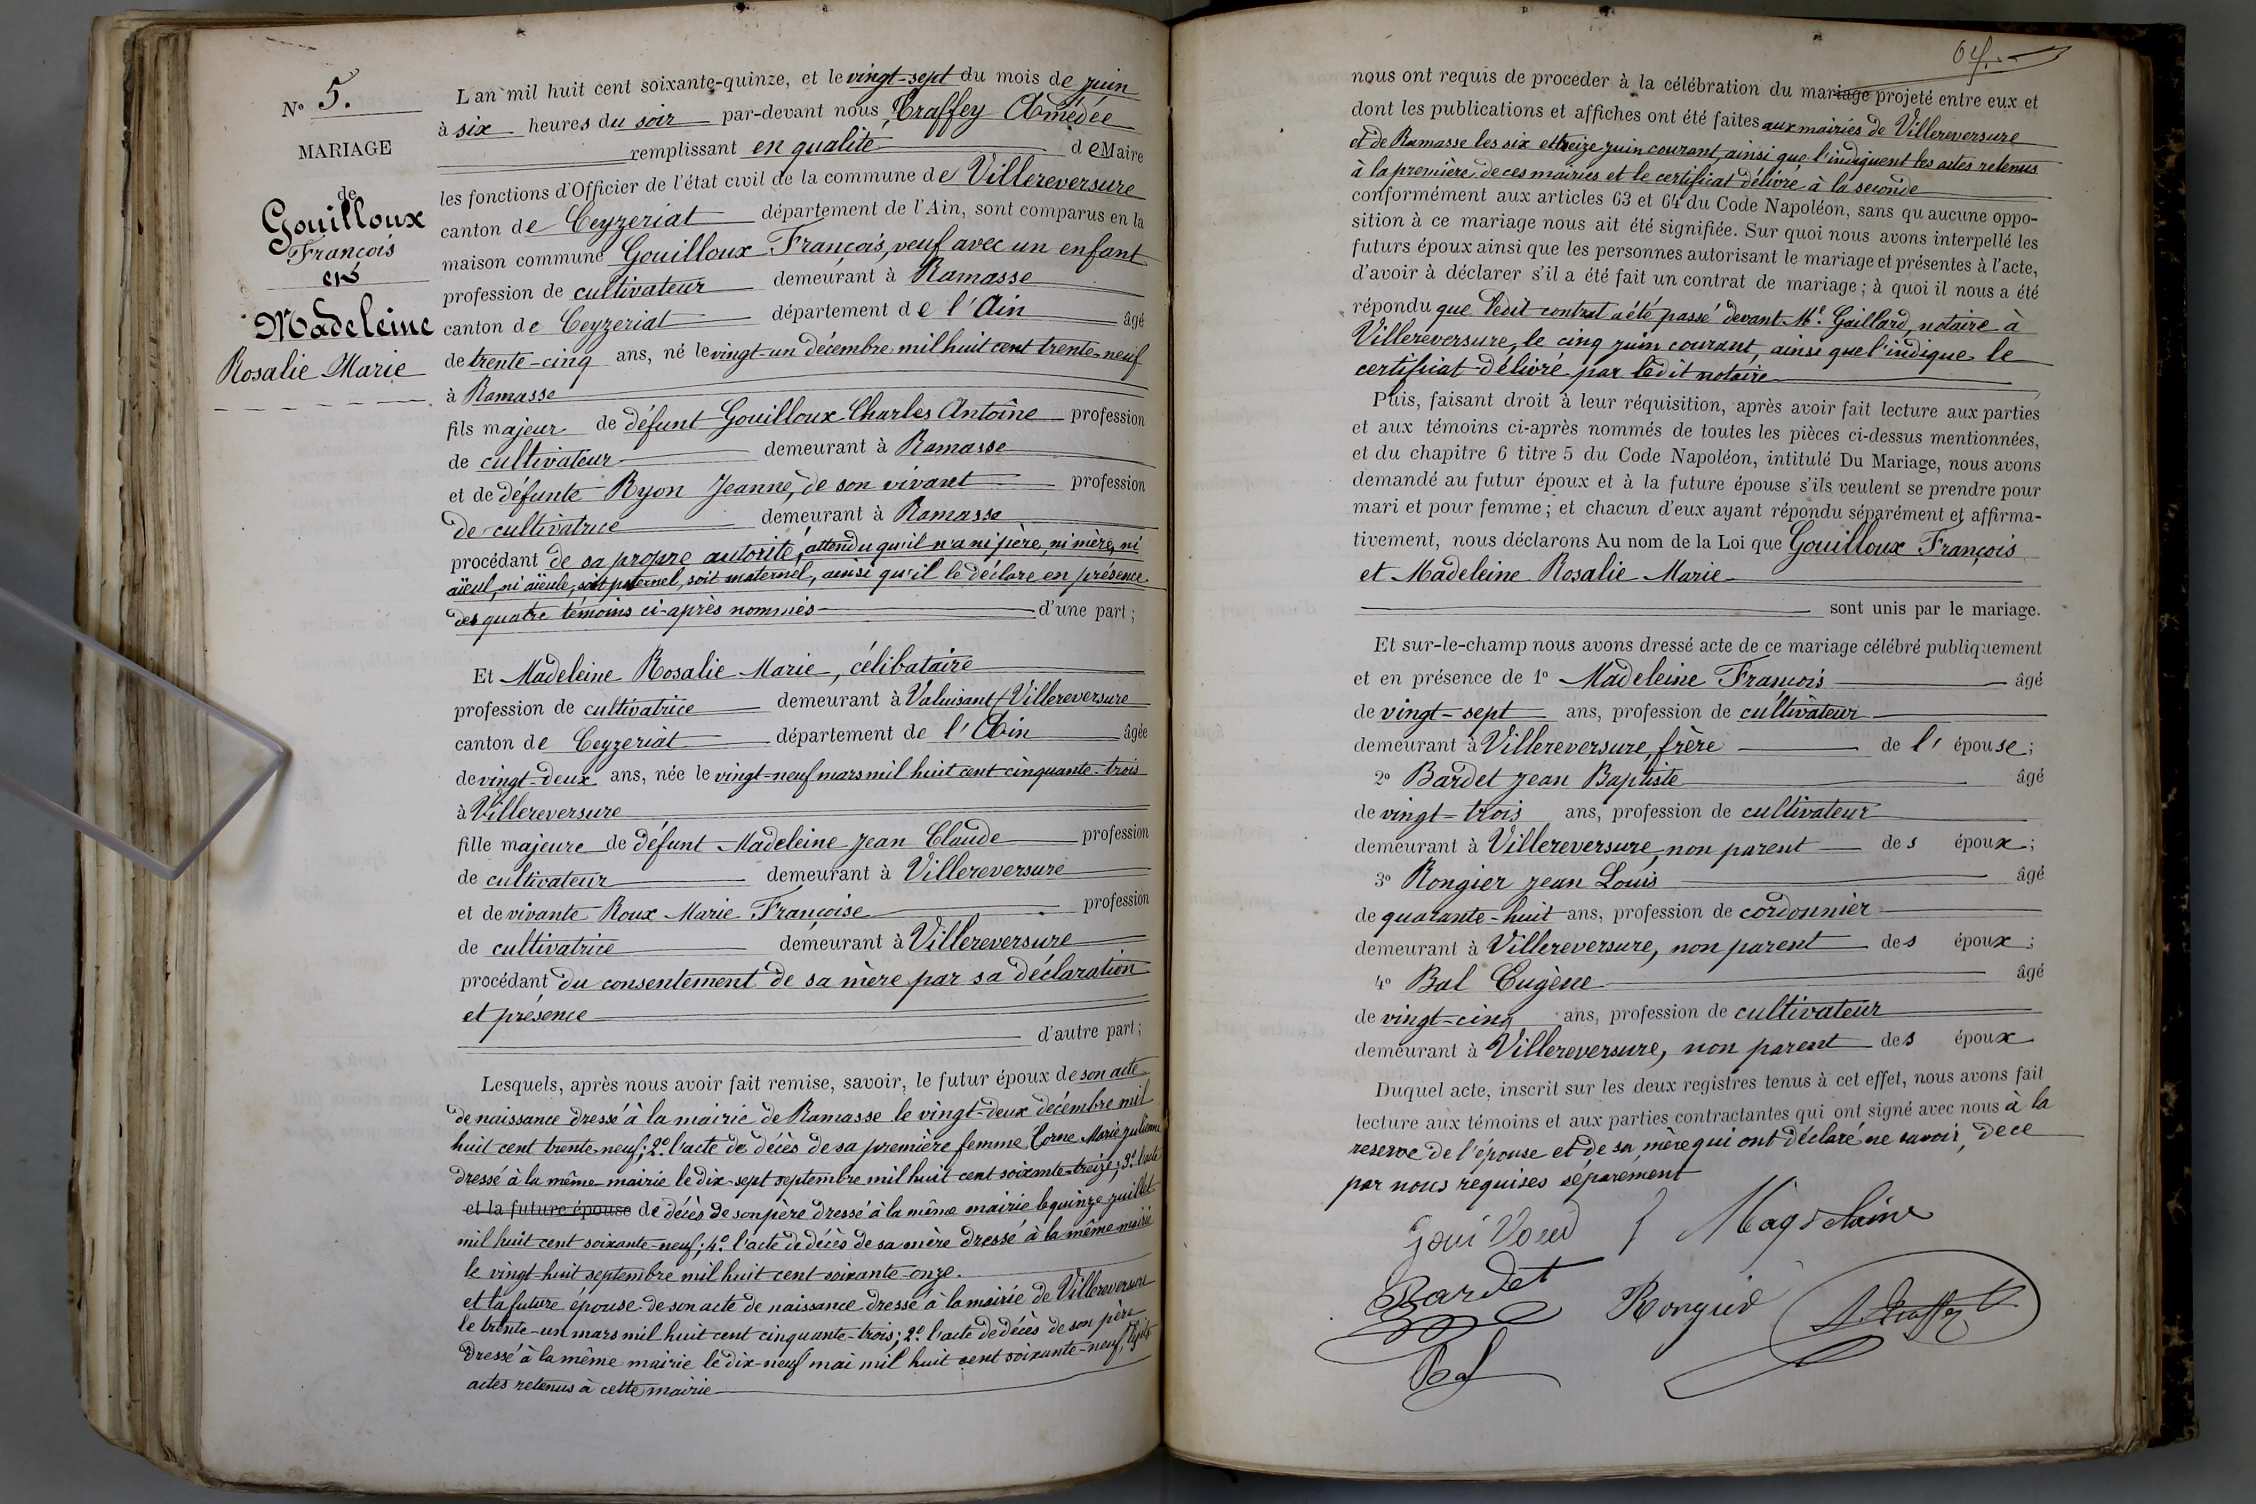 N° 5.
MARIAGE
de
Gouilloux
François
et
Madeleine
Rosalie Marie
L'an mil huit cent soixante-quinze, et le vingt-sept du mois de juin
à six heures du soir par-devant nous Traffey Amédée
remplissant en qualité de Maire
les fonctions d'Officier de l'état civil de la commune de Villereversure
canton de Ceyzeriat département de l'Ain, sont comparus en la
maison commune Gouilloux François, veuf avec un enfant
profession de cultivateur demeurant à Ramasse
canton de Ceyzeriat département de l'Ain âgé
de trente-cinq ans, né le vingt-un décembre mil huit cent trente-neuf
à Ramasse
fils majeur de défunt Gouilloux Charles Antoine profession
de cultivateur demeurant à Ramasse
et de défunte Ryon Jeanne, de son vivant profession
de cultivatrice demeurant à Ramasse
procédant de sa propre autorité, attendu qu'il n'a ni père, ni mère, ni
aïeul, ni aïeule, soit paternel, soit maternel, ainsi qu'il le déclare en présence
des quatre témoins ci-après nommés d'une part ;
Et Madeleine Rosalie Marie, célibataire
profession de cultivatrice demeurant à Valuisant (Villereversure
canton de Ceyzeriat département de l'Ain âgée
de vingt-deux ans, née le vingt-neuf mars mil huit cent cinquante-trois
à Villereversure
fille majeure de défunt Madeleine Jean Claude profession
de cultivateur demeurant à Villereversure
et de vivante Roux Marie Françoise profession
de cultivatrice demeurant à Villereversure
procédant du consentement de sa mère par sa déclaration
et présence
d'autre part ;
Lesquels, après nous avoir fait remise, savoir, le futur époux de son acte
de naissance dressé à la mairie de Ramasse le vingt-deux décembre mil
huit cent trente-neuf; 2° l'acte de décès de sa première femme Corne Marie Julienne
dressé à la même mairie le dix-sept septembre mil huit cent soixante-treize; 3° l'acte
et la future épouse de décès de son père dressé à la même mairie le quinze juillet
mil huit cent soixante-neuf; 4° l'acte de décès de sa mère dressé à la même mairie
le vingt-huit septembre mil huit cent soixante-onze.
et la future épouse de son acte de naissance dressé à la mairie de Villereversure
le trente-un mars mil huit cent cinquante-trois; 2° l'acte de décès de son père
dressé à la même mairie le dix-neuf mai mil huit cent soixante-neuf, lesdits
actes retenus à cette mairie
64.
nous ont requis de procéder à la célébration du mariage projeté entre eux et
dont les publications et affiches ont été faites aux mairies de Villereversure
et de Ramasse les six et treize juin courant, ainsi que l'indiquent les actes retenus
à la première de ces mairies et le certificat délivré à la seconde
conformément aux articles 63 et 64 du Code Napoléon, sans qu'aucune oppo-
sition à ce mariage nous ait été signifiée. Sur quoi nous avons interpellé les
futurs époux ainsi que les personnes autorisant le mariage et présentes à l'acte,
d'avoir à déclarer s'il a été fait un contrat de mariage ; à quoi il nous a été
répondu que ledit contrat a été passé devant Me. Gaillard, notaire à
Villereversure, le cinq juin courant, ainsi que l'indique le
certificat délivré par ledit notaire
Puis, faisant droit à leur réquisition, après avoir fait lecture aux parties
et aux témoins ci-après nommés de toutes les pièces ci-dessus mentionnées,
et du chapitre 6 titre 5 du Code Napoléon, intitulé Du Mariage, nous avons
demandé au futur époux et à la future épouse s'ils veulent se prendre pour
mari et pour femme ; et chacun d'eux ayant répondu séparément et affirma-
tivement, nous déclarons Au nom de la Loi que Gouilloux François
et Madeleine Rosalie Marie
sont unis par le mariage.
Et sur-le-champ nous avons dressé acte de ce mariage célébré publiquement
et en présence de 1° Madeleine François âgé
de vingt-sept ans, profession de cultivateur
demeurant à Villereversure, frère de l'épouse ;
2° Bardet Jean Baptiste âgé
de vingt-trois ans, profession de cultivateur
demeurant à Villereversure, non parent des époux ;
3° Rongier Jean Louis âgé
de quarante-huit ans, profession de cordonnier
demeurant à Villereversure, non parent des époux ;
4° Bal Eugène âgé
de vingt-cinq ans, profession de cultivateur
demeurant à Villereversure, non parent des époux
Duquel acte, inscrit sur les deux registres tenus à cet effet, nous avons fait
lecture aux témoins et aux parties contractantes qui ont signé avec nous à la
reserve de l'épouse et de sa mère qui ont déclaré ne savoir, de ce
par nous requises séparément
Magdelaine
Bardet Rongier A. Traffey
Bal